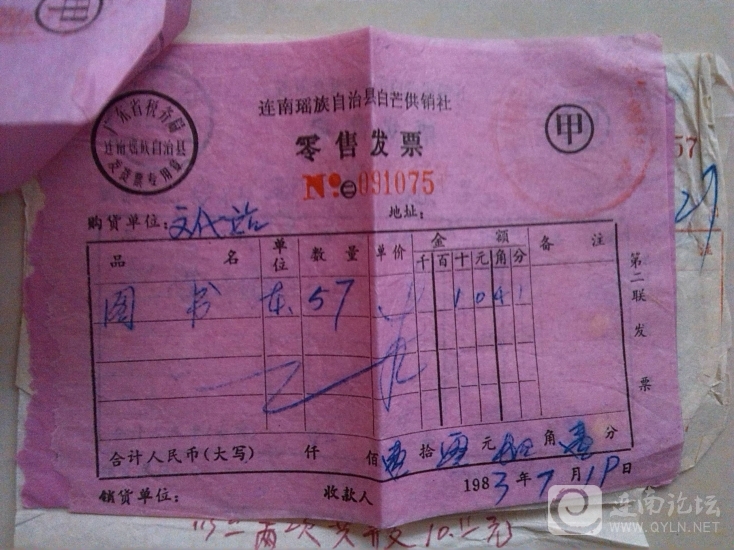 甲
连南瑶族自治县白芒供销社
广东省税务局
连南瑶族自治县
发货票专用章
甲
零售发票
No.㊀091075
57
购货单位：文化站 地址：
品名 单位 数量 单价 金额 备注
千 百 十 元 角 分
图书 本 57 1 0 4 1
第二联 发票
合计人民币(大写) 仟 佰 壹 拾 零 元 肆 角 壹 分
销货单位： 收款人 1983年7月19日
连南论坛
WWW.QYLN.NET